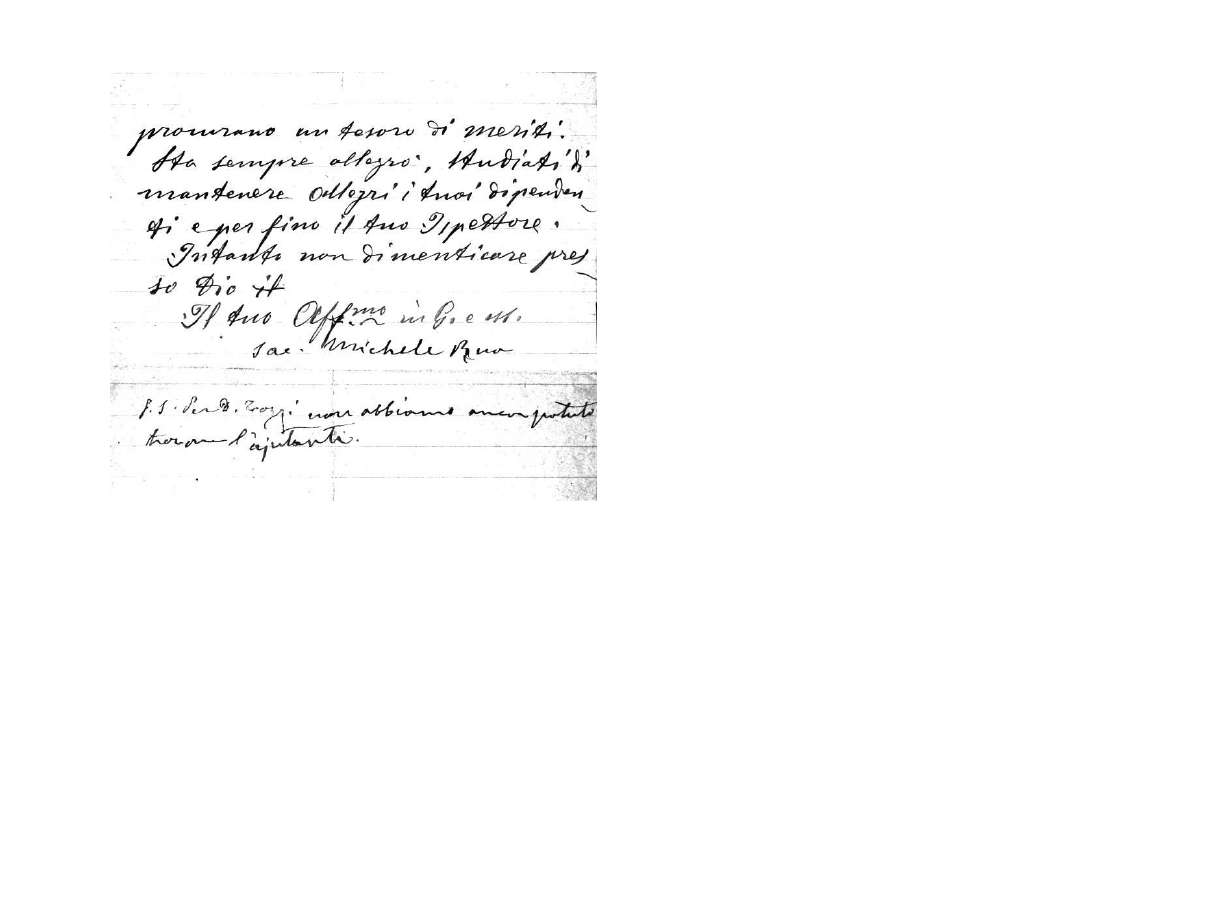 procurano un tesoro di meriti.
Sta sempre allegro, studiati di
mantenere allegri i tuoi dipenden
ti e per fino il tuo Ispettore.
Intanto non dimenticare pres
so Dio il
Il tuo Aff.mo in G. e M.
Sac. Michele Rua
P.S. Per D. Tozzi non abbiamo ancor potuto
trovare l'ajutanti.